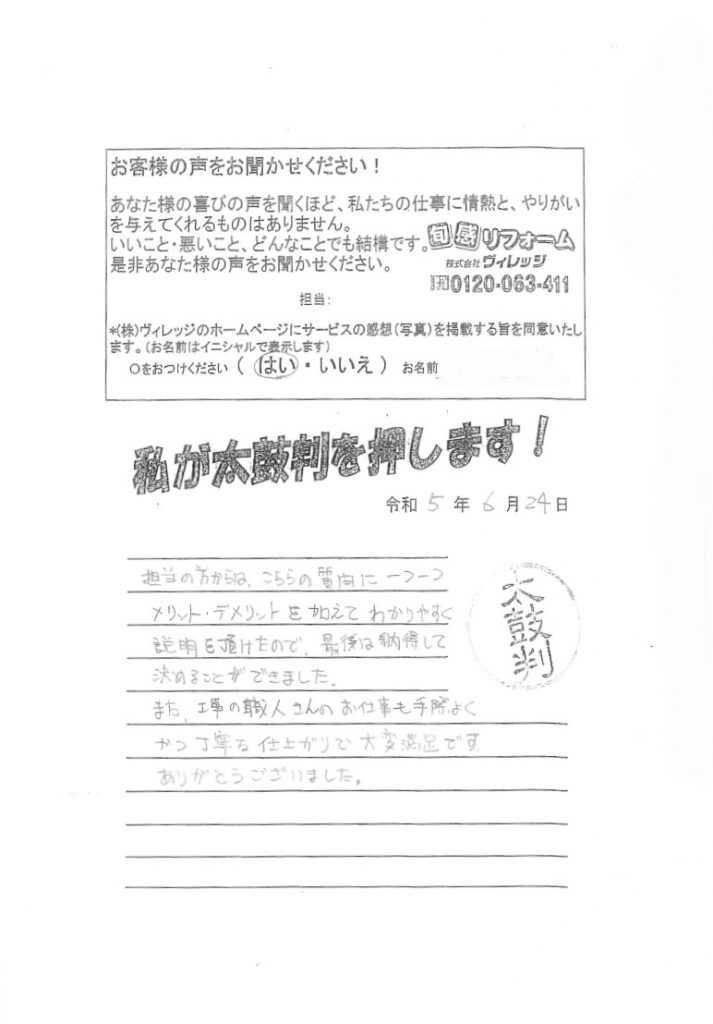 お客様の声をお聞かせください！
あなた様の喜びの声を聞くほど、私たちの仕事に情熱と、やりがい
を与えてくれるものはありません。
いいこと・悪いこと、どんなことでも結構です。
是非あなた様の声をお聞かせください。
旬感リフォーム
株式会社ヴィレッジ
0120-063-411
担当:
*(株)ヴィレッジのホームページにサービスの感想(写真)を掲載する旨を同意いたし
ます。(お名前はイニシャルで表示します)
○をおつけください ( はい ・ いいえ ) お名前
私が太鼓判を押します！
令和 5 年 6 月 24 日
担当の方からは、こちらの質問に一つ一つ
メリット・デメリットを加えてわかりやすく
説明を頂けたので、最後は納得して
決めることができました。
また、工事の職人さんのお仕事も手際よく
かつ丁寧な仕上がりで大変満足です
ありがとうございました。
太鼓判